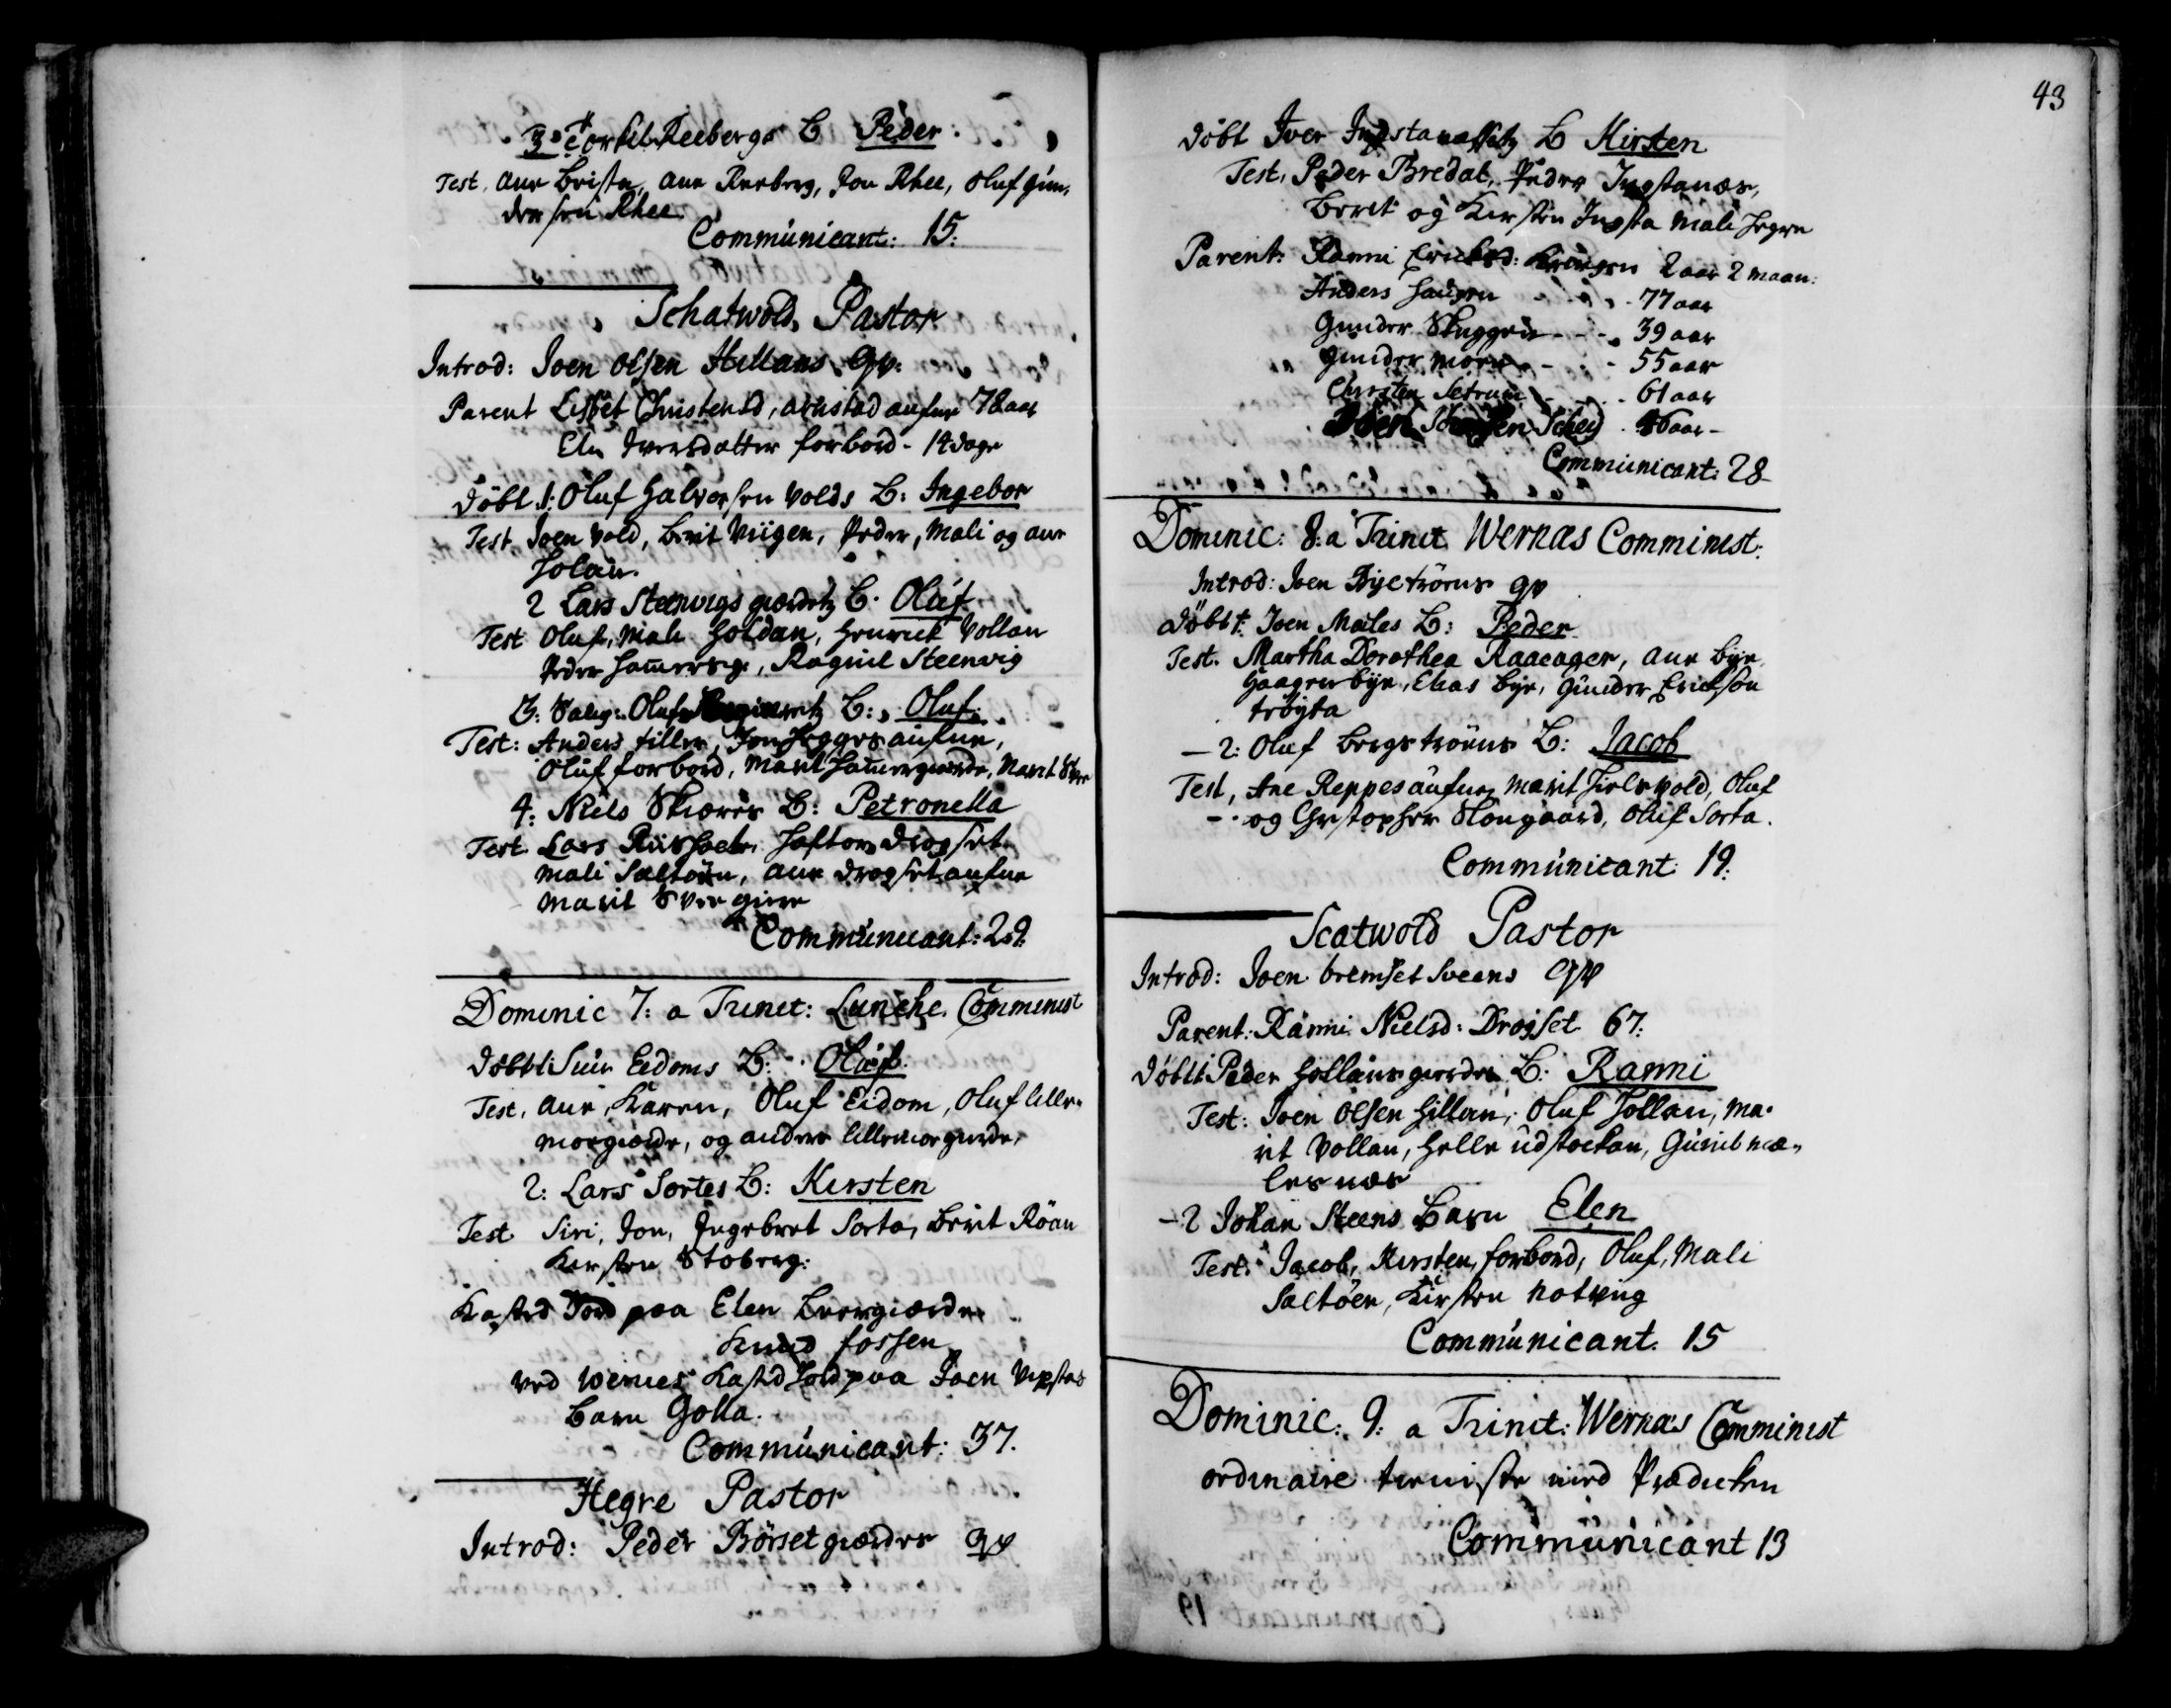 3: Torkel Reebergs B Peder.
Test. Ane Brista, Ane Reeberg, Jon Rhee, Oluf Gun,
dersen Rhee
Communicant: 15.
Schatwold, Pastor
Introd: Joen Olsen Hillans Qv:
Parent Lisbet Christensd, Arnstad aufne 78 aar
Elen Iversdatter forbord - 14 dage
Döbt 1: Oluf Halvorsen Volds B: Ingebor
Test, Joen Vold, Berit Viigen, Peder, Mali og Ane
Holan.
2 Lars Steenvigs giærdetz B. Oluf
Test Oluf, Mali Holdan, Henrick Vollan
Peder Hamersg:, Ragnil Steenvig
3: Salig: Oluf B: Oluf.
Test: Anders Tiller, Jon aufne,
Oluf forbord, Marit Hamergierde, Marit
4: Niels Skiæres B: Petronella
Test. Lars Hafton Drogset
Mali Saltöen, Ane Drogset aufne
Marit
Communicant: 29.
Dominic 7: a Trinit: Lancke. Comminist
Döbt 1: Siur Eidoms B: Oluf.
Test, Ane, Karen, Oluf Eidom, Oluf lille,
moegierde, og Anders lillemoegierde,
2: Lars Sortes B: Kirsten
Test Siri, Jon, Ingebret Sorta, Berit Röan
Kirsten Stoberg:
Kasted Jord paa Elen Beergiærde
Knud fossen
ved Wernes Kasted Jord paa Joen
Barn Golla.
Communicant: 37.
Hegre Pastor
Introd: Peder Börsetgiærdes Qv
43
Döbt Iver B Kirsten
Test, Peder Bredal, Peder Ingstanæs,
Berit og Kirsten Ingsta Mali Hegre
Parent: Ranni Ericksd: 2 aar 2 maan:
Anders Haugen - - - 77 aar
Gunder Skuggen - - - 39 aar
Gunder Moen - - - 55 aar
Chirsten Setran - - - 61 aar
Joen 46 aar -
Communicant: 28
Dominic: 8: a Trinit Wernæs Comminist:
Introd: Joen Byetröens Qv
Döbt 1: Joen Mæles B: Peder
Test. Martha Dorothea Raaeager, Ane Bye,
Haagen Bye, Elias Bye, Gunder Erickson
tröyta
- 2: Oluf Bergströens B: Jacob
Test, Ane Reppes aufne, Marit Fielvold, Oluf
- og Christopher Slongaard, Oluf Sorta.
Communicant: 19:
Scatwold Pastor
Introd: Joen bremset Sveens Qv
Parent: Ranni Nielsd: Drogset 67:
Döbt 1 Peder Hollans gierdes B: Ranni
Test: Joen Olsen Hillan, Oluf Hollan, Ma-
rit Vollan, Helle udstockan, Gunil Mæ-
les næs
- 2 Johan Steens Barn Elen
Test: Jacob, Kirsten, forbord, Oluf, Mali
Saltöen, Kirsten Hotvig
Communicant. 15
Dominic: 9: a Trinit: Wernæs Comminist
ordinaire tieniste med Prædicken
Communicant 13